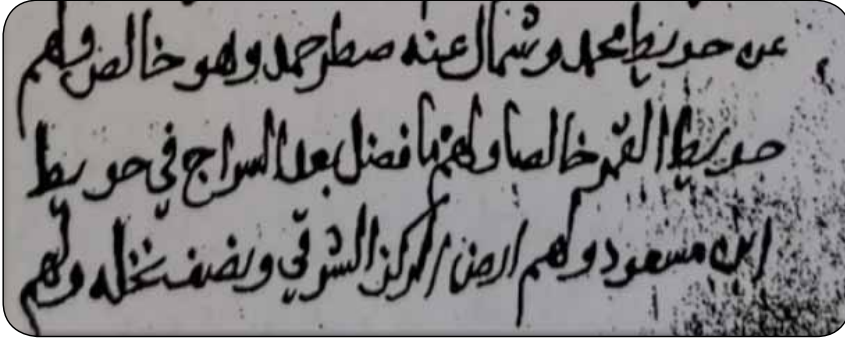 عن حويط محمد وشمال عنه صطر حمد وهو خالص ولهم
حويط القهر خالصا ولهم ما فضل بعد السراج في حويط
ابن مسعود ولهم ارض المركز الشرقي ونصف نخله ولهم